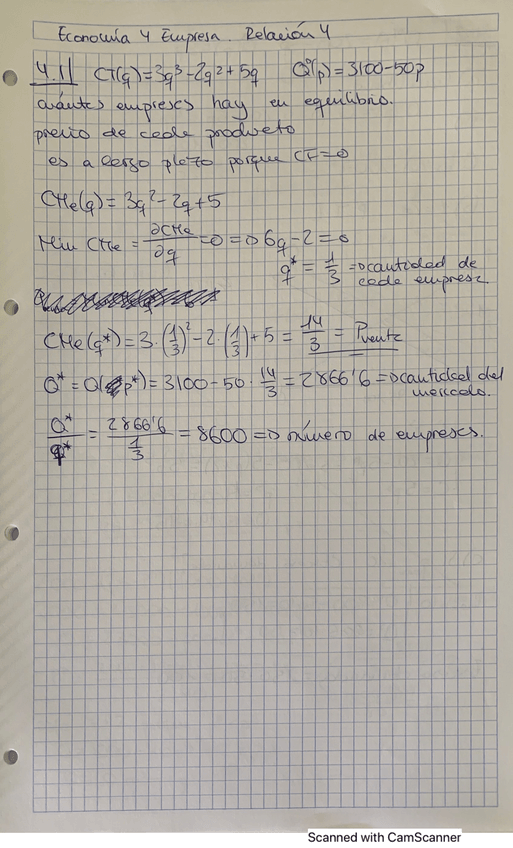 Economía y Empresa. Relación 4
4.1| CT(q) = 3q³ - 2q² + 5q Qᵈ(p) = 3100 - 50p
cuántas empresas hay en equilibrio.
precio de cada producto
es a largo plazo porque CF = 0
CMe(q) = 3q² - 2q + 5
Min CMe = ∂CMe/∂q = 0 => 6q - 2 = 0
q* = 1/3 => cantidad de
cada empresa.
CMe(q*) = 3·(1/3)² - 2·(1/3) + 5 = 14/3 = Pventa
Q* = Q(p*) = 3100 - 50·14/3 = 2866'6 => cantidad del
mercado.
Q*/q* = 2866'6/(1/3) = 8600 => número de empresas.
Scanned with CamScanner